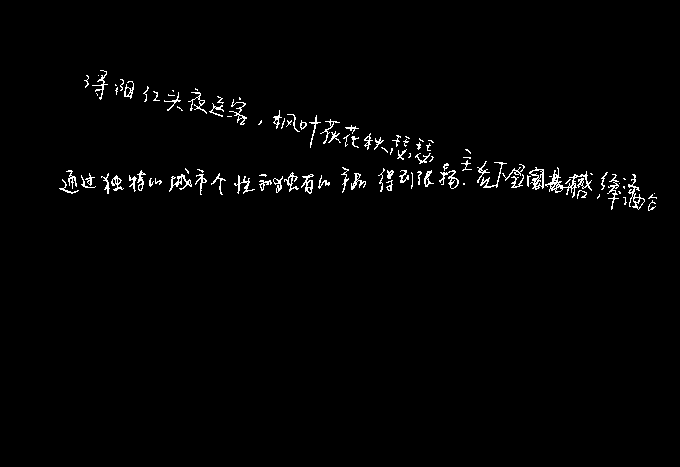 浔阳江头夜送客，枫叶荻花秋瑟瑟
通过独特的城市个性和独有的产品得到张扬.